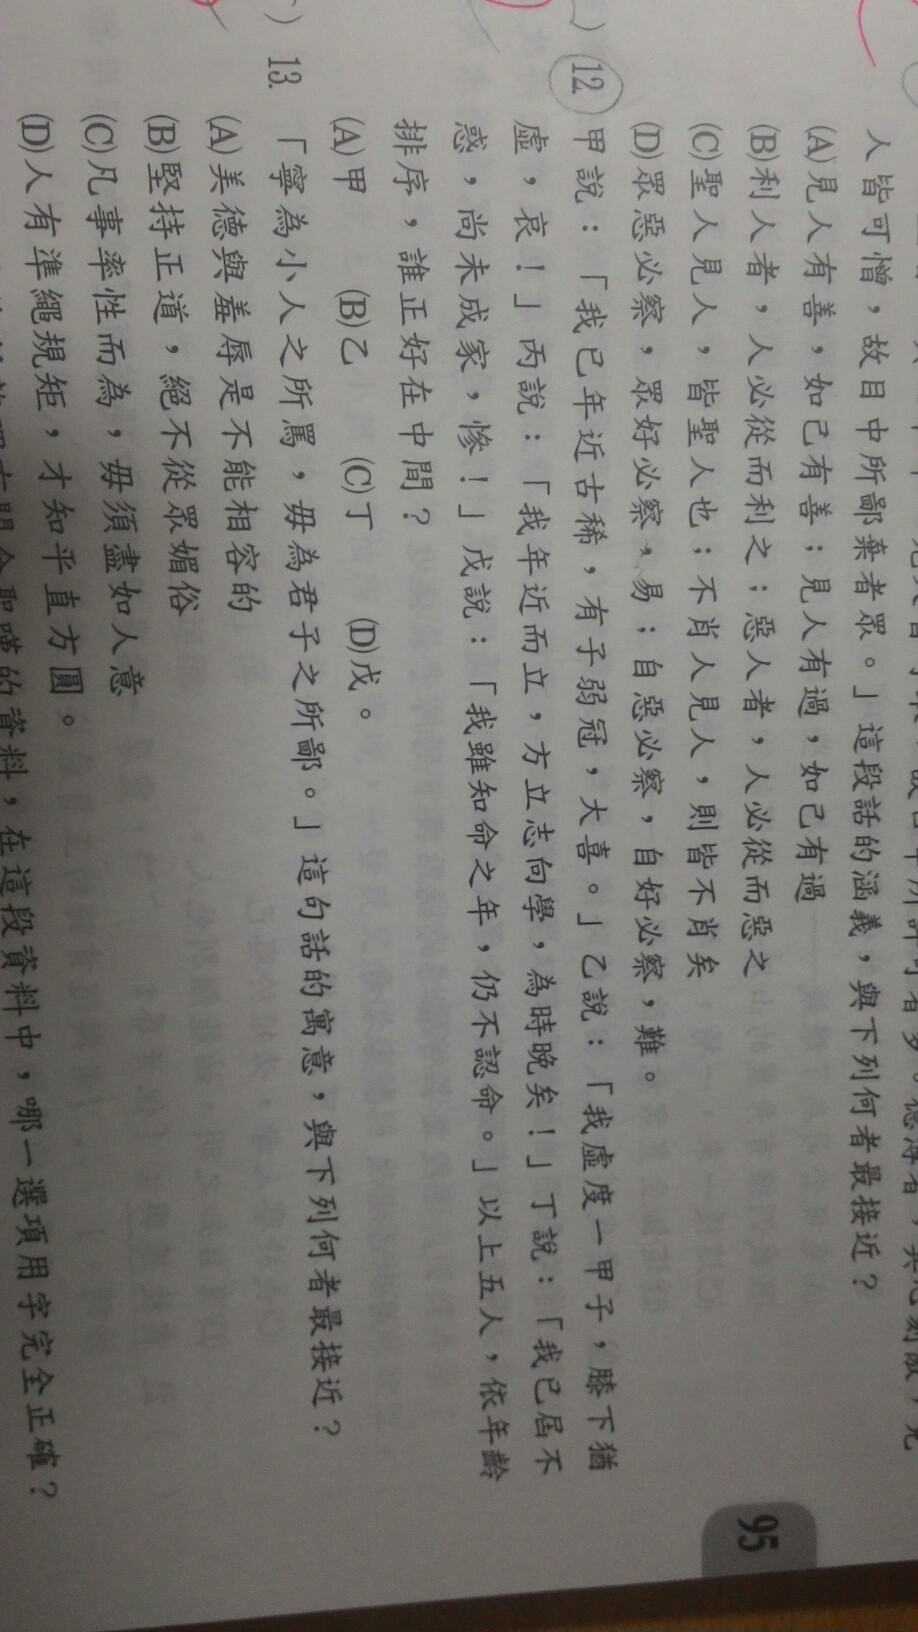 人皆可憎，故目中所鄙棄者眾。」這段話的涵義，與下列何者最接近？
(A)見人有善，如己有善；見人有過，如己有過
(B)利人者，人必從而利之；惡人者，人必從而惡之
(C)聖人見人，皆聖人也；不肖人見人，則皆不肖矣
(D)眾惡必察，眾好必察，易；自惡必察，自好必察，難。
12 甲說：「我已年近古稀，有子弱冠，大喜。」乙說：「我虛度一甲子，膝下猶
虛，哀！」丙說：「我年近而立，方立志向學，為時晚矣！」丁說：「我已屆不
惑，尚未成家，慘！」戊說：「我雖知命之年，仍不認命。」以上五人，依年齡
排序，誰正好在中間？
(A)甲 (B)乙 (C)丁 (D)戊。
) 13. 「寧為小人之所罵，毋為君子之所鄙。」這句話的寓意，與下列何者最接近？
(A)美德與羞辱是不能相容的
(B)堅持正道，絕不從眾媚俗
(C)凡事率性而為，毋須盡如人意
(D)人有準繩規矩，才知平直方圓。
在這段資料中，哪一選項用字完全正確？
95